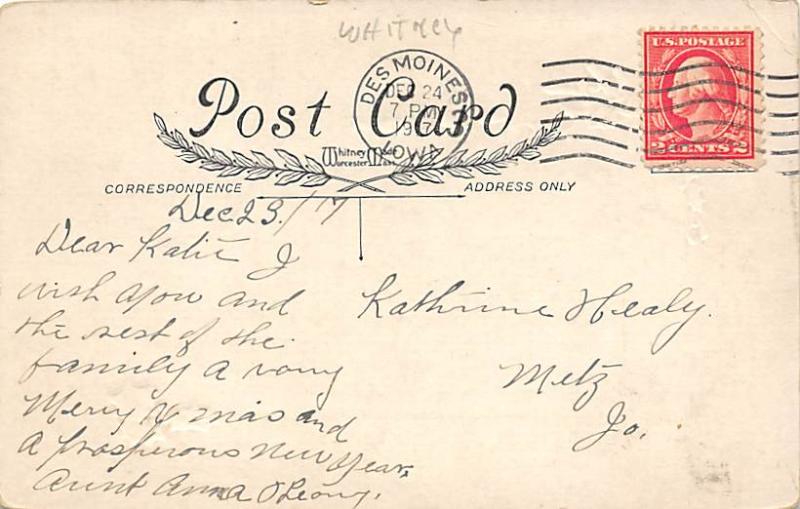 WHITNEY
DES MOINES
DEC 24
7 PM
1917
IOWA
U.S. POSTAGE
2 CENTS 2
Post Card
Whitney Made
Worcester, Mass
CORRESPONDENCE
ADDRESS ONLY
Dec 23/17
Dear Katie I
wish you and
the rest of the
family a very
Merry Xmas and
a prosperous New Year,
Aunt Anna O'Leary.
Kathrine Healy.
Metz
Io.